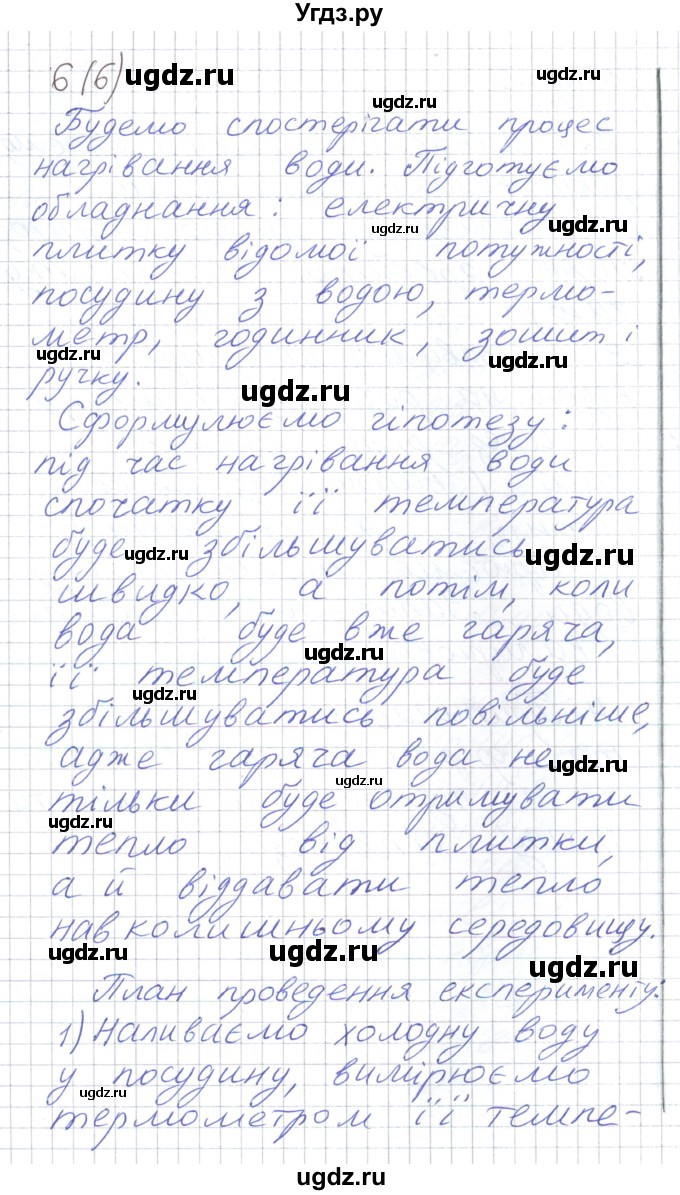 Угдз.ру
6 (6) ugdz.ru ugdz.ru
Будемо спостерігати процес ugdz.ru
нагрівання води. Підготуємо
обладнання: електричну ugdz.ru
плитку відомої потужності, ugdz.ru
посудину з водою, термо-
метр, годинник, зошит і
ugdz.ru ugdz.ru
ручку. ugdz.ru
Сформулюємо гіпотезу:
під час нагрівання води
спочатку її температура
буде збільшуватись
ugdz.ru ugdz.ru
швидко, а потім, коли
вода буде вже гаряча,
ugdz.ru
її температура буде
ugdz.ru
збільшуватись повільніше,
адже гаряча вода не ugdz.ru
ugdz.ru
тільки буде отримувати
ugdz.ru
тепло від плитки,
а й віддавати тепло
навколишньому середовищу.
ugdz.ru ugdz.ru ugdz.ru
План проведення експерименту:
1) Наливаємо холодну воду
у посудину, вимірюємо
ugdz.ru
термометром її темпе-
ugdz.ru